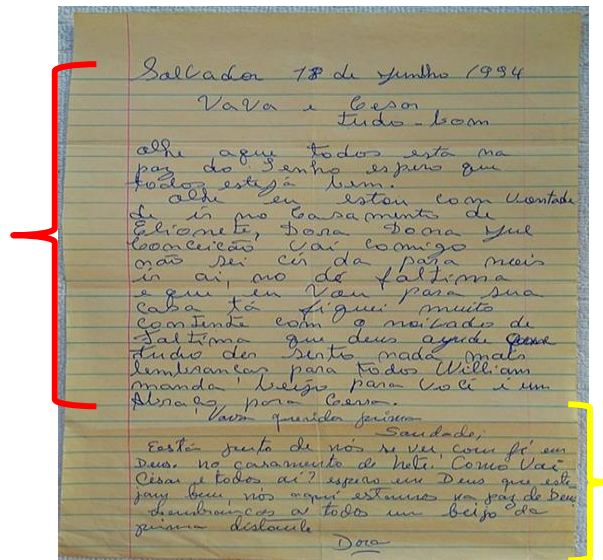 Salvador 18 de junho 1994
VaVa e Cesar
tudo-bom
olhe aqui todos esta na
paz do Senho espero que
todos estejá bem.
Olhe eu estou com vontade
de ir no Casamento de
Elionete, Dora Dona
Conceição Vai Comigo
não sei da para mais
ir ai, no de faltima
e que eu Vou para sua
casa tá fiquei muito
contente com o noivado de
faltima que deus ajude
tudio der serto nada mais
lembrancas para todos William
manda beijo para Você i um
Abraço para Cersa.
Vava querida prima
Saudade,
Está junto de nós se ver, com fé em
Deus. no casamento de Neti. Como Vai
Cesar e todos ai? espero em Deus que este-
jam bem, nós aqui estamos na paz de Deus
Lembranças a todos um beijo da
prima distante
Dora